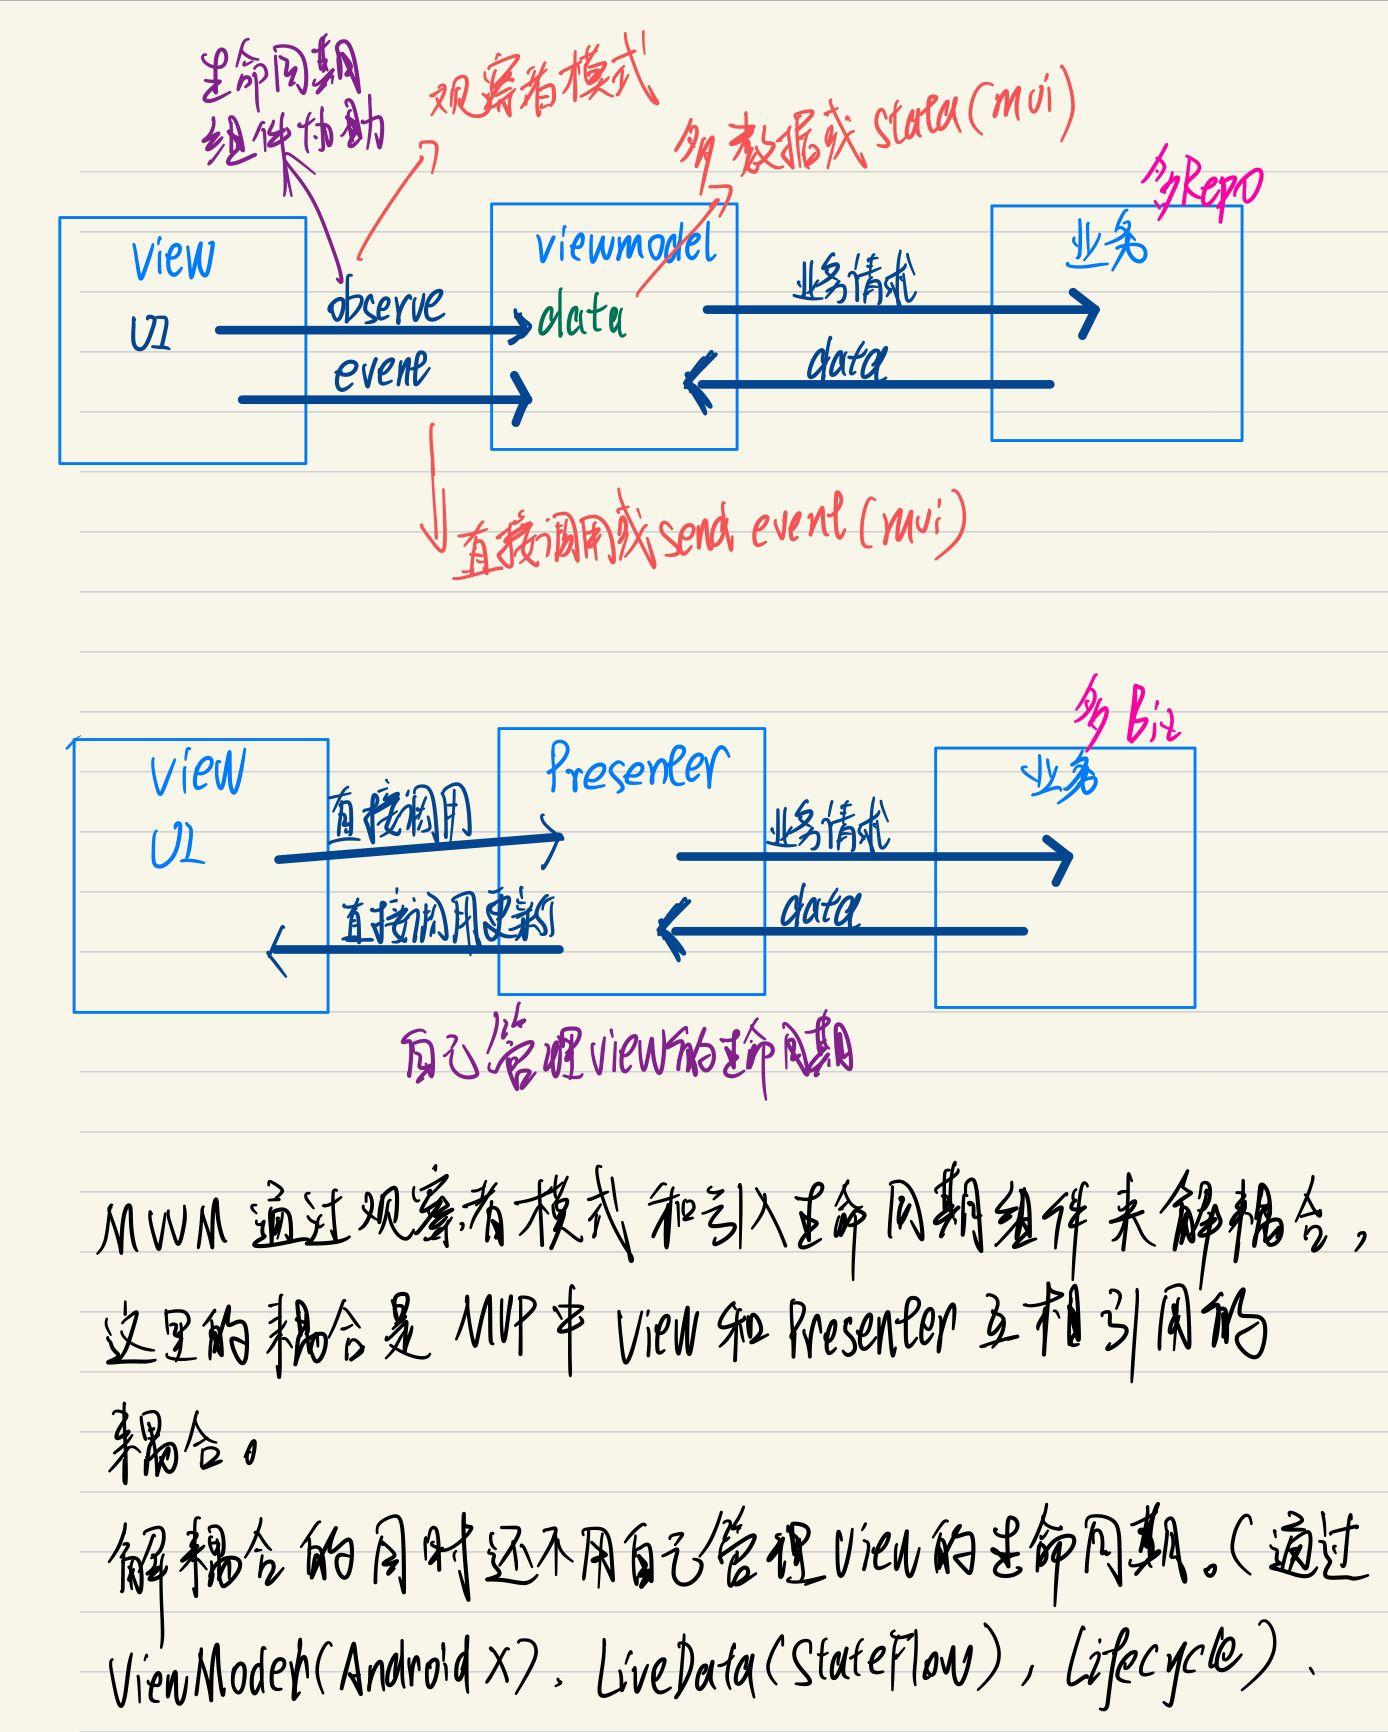 生命周期
组件协助
观察者模式
多数据或 stata(mvi)
多Repo
view
UI
observe
event
viewmodel
data
业务请求
data
业务
直接调用或 send event(mvi)
多 Biz
view
UI
直接调用
直接调用更新
Presenter
业务请求
data
业务
自己管理view的生命周期
MVVM 通过观察者模式和引入生命周期组件来解耦合，
这里的耦合是 MVP中 View 和 Presenter 互相引用的
耦合。
解耦合的同时还不用自己管理view的生命周期。（通过
ViewModel(AndroidX)、LiveData(StateFlow)，Lifecycle）.